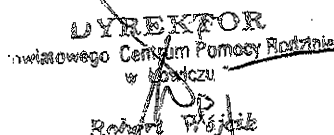 DYREKTOR
Powiatowego Centrum Pomocy Rodzinie
w Łowiczu
Robert Wójcik